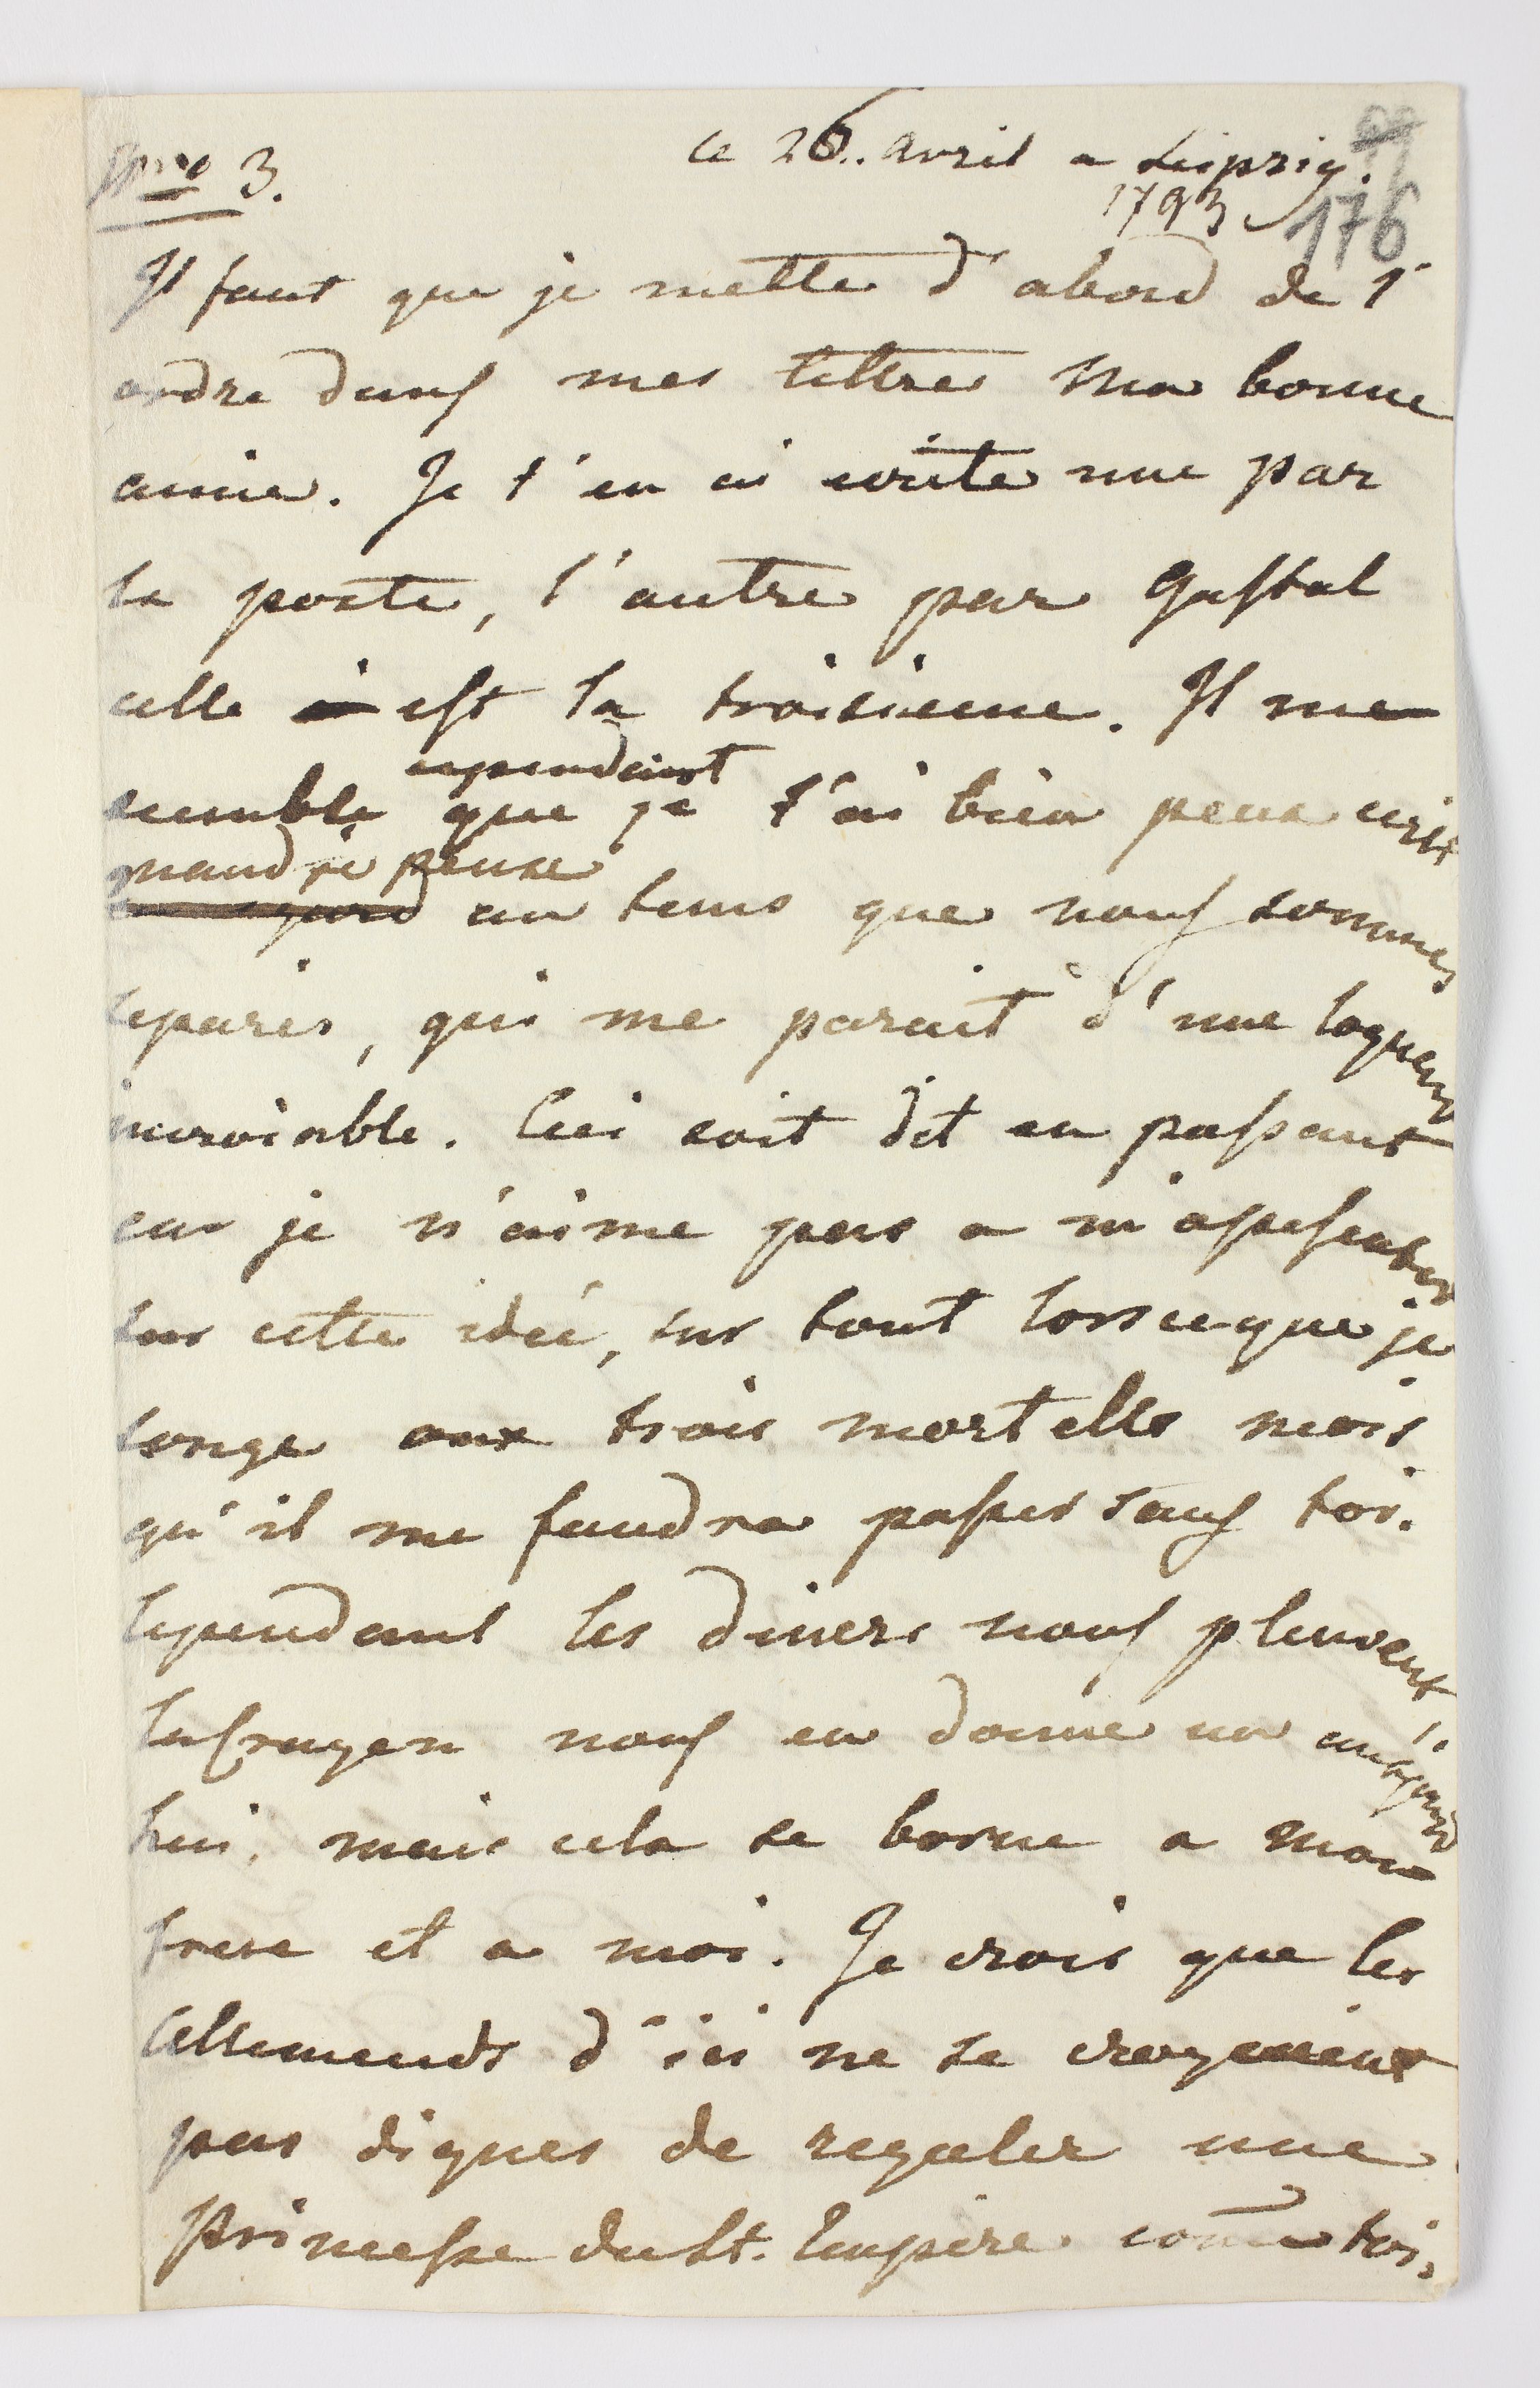 Nro 3.
ce 26. avril a Leipzig.
1793
176
Il faut que je mette d'abord de l'
ordre dans mes lettres ma bonne
amie. Je t'en ai ecrite une par
la poste, l'autre par Gastal
celle ci est la troisieme. Il me
cependant
semble que je t'ai bien peu ecrit
quand je pense
au tems que nous sommes
separés, qui me parait d'une logueur
incroiable. Ceci soit dit en passant
car je n'aime pas a m'apesentir
sur cette idée, sur tout lorsceque je
songe aux trois mortells mois
qu'il me faudra passer sans toi.
Cependant les diners nous pleuvent
nous en donne un aujourd
hui, mais cela se borne a mon
frere et a moi. Je crois que les
Allemends d'ici ne se croyaient
pas dignes de regaler une
Princesse du St. Empire come toi,